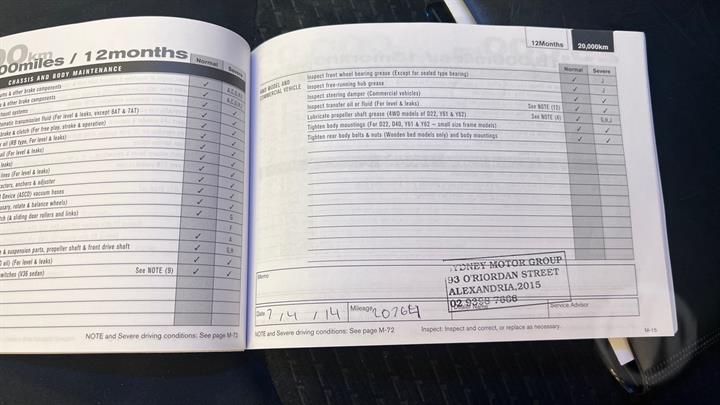 00km
00miles / 12months
Normal Severe
CHASSIS AND BODY MAINTENANCE
& other brake components
& other brake components
exhaust systems
automatic transmission fluid (For level & leaks, except 8AT & 7AT)
brake & clutch (For free play, stroke & operation)
oil (RB type, For level & leaks)
oil (For level & leaks)
leaks)
lines (For level & leaks)
anchors & adjuster
Device (ASCD) vacuum hoses
rotate & balance wheels)
(& sliding door rollers and links)
G
F
A
& suspension parts, propeller shaft & front drive shaft G,H
oil) (For level & leaks)
switches (V36 sedan) See NOTE (9)
NOTE and Severe driving conditions: See page M-73
12Months 20,000km
Normal Severe
4WD MODEL AND
COMMERCIAL VEHICLE
Inspect front wheel bearing grease (Except for sealed type bearing)
Inspect free-running hub grease
Inspect steering damper (Commercial vehicles)
Inspect transfer oil or fluid (For level & leaks) See NOTE (12)
Lubricate propeller shaft grease (4WD models of D22, Y61 & Y62) See NOTE (4) G,H,J
Tighten body mountings (For D22, D40, Y61 & Y62 – small size frame models)
Tighten rear body bolts & nuts (Wooden bed models only) and body mountings
Memo
SYDNEY MOTOR GROUP
93 O'RIORDAN STREET
ALEXANDRIA, 2015
Date 7/4/14 Mileage
Service Advisor
NOTE and Severe driving conditions: See page M-72 Inspect: Inspect and correct, or replace as necessary. M-15